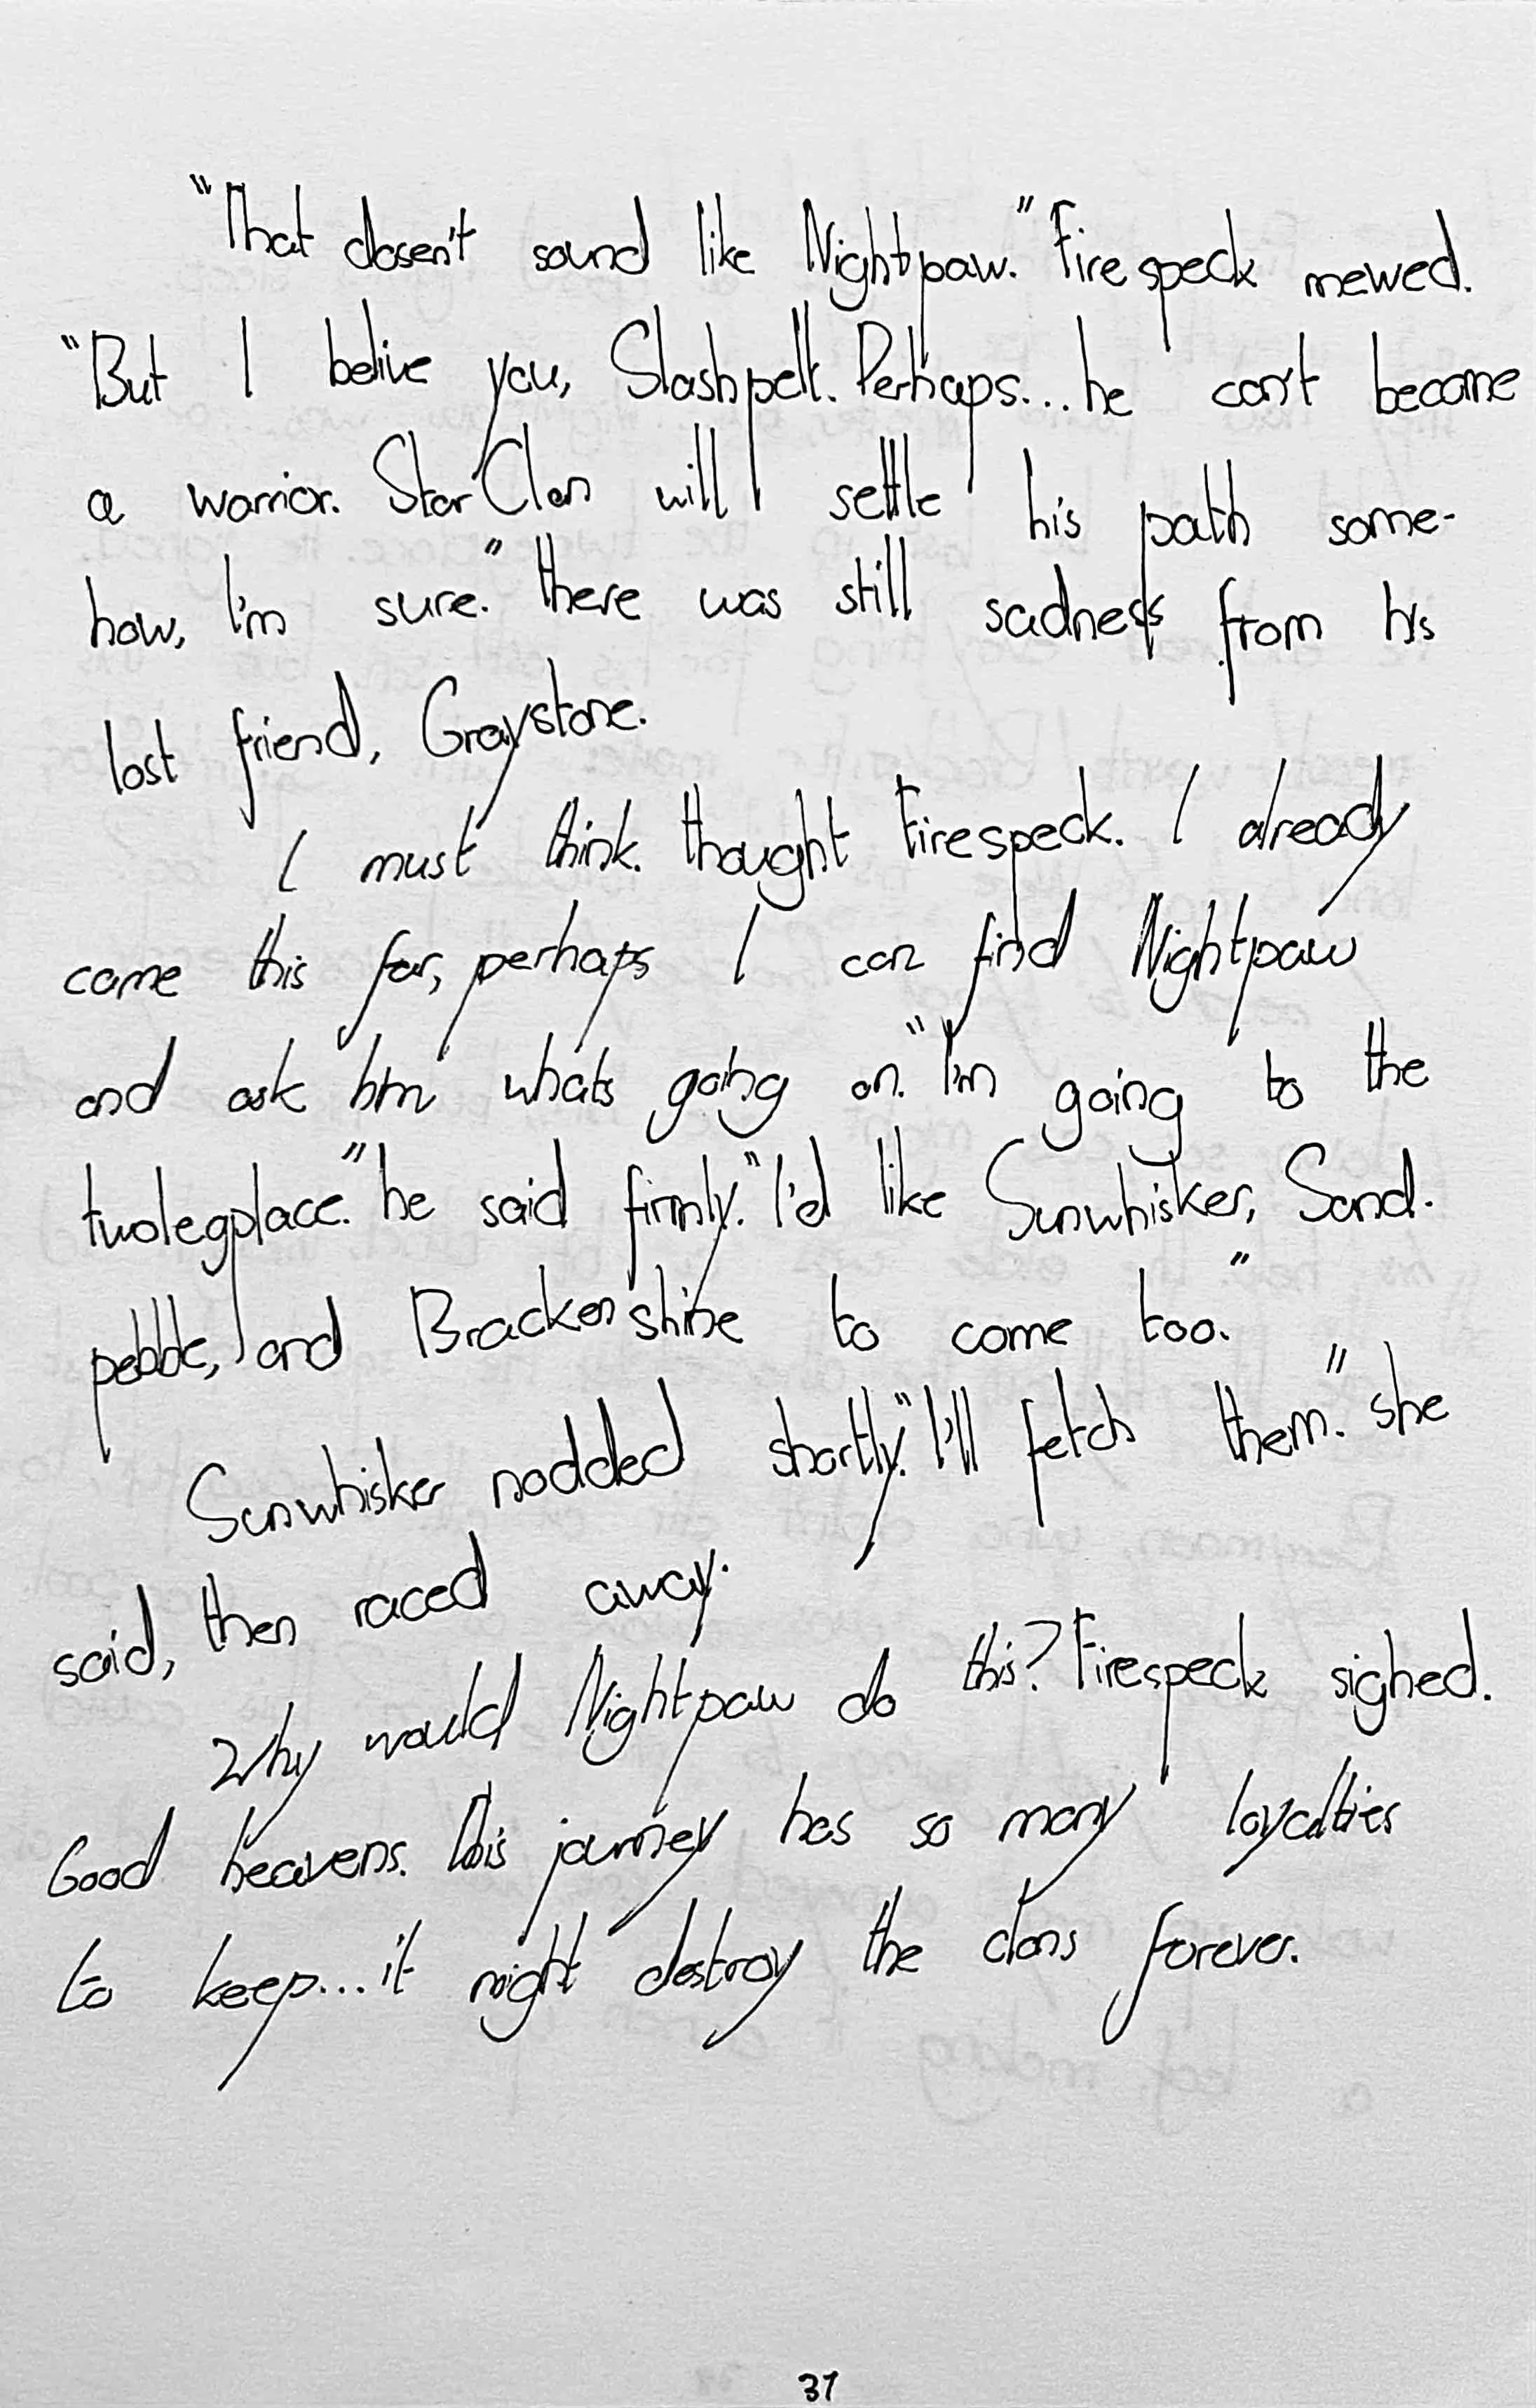 "That dosen't sound like Nightpaw." Firespeck mewed.
"But I belive you, Slashpelt. Perhaps... he can't become
a warrior. StarClan will settle his path some-
how, I'm sure." there was still sadness from his
lost friend, Graystone.
I must think. thought Firespeck. I already
came this far, perhaps I can find Nightpaw
and ask him whats going on. "I'm going to the
twolegplace." he said firmly. "I'd like Sunwhisker, Sand-
pebble, and Brackenshine to come too."
Sunwhisker nodded shortly. "I'll fetch them." she
said, then raced away.
Why would Nightpaw do this? Firespeck sighed.
Good heavens. This journey has so many loyalties
to keep... it might destroy the clans forever.
37